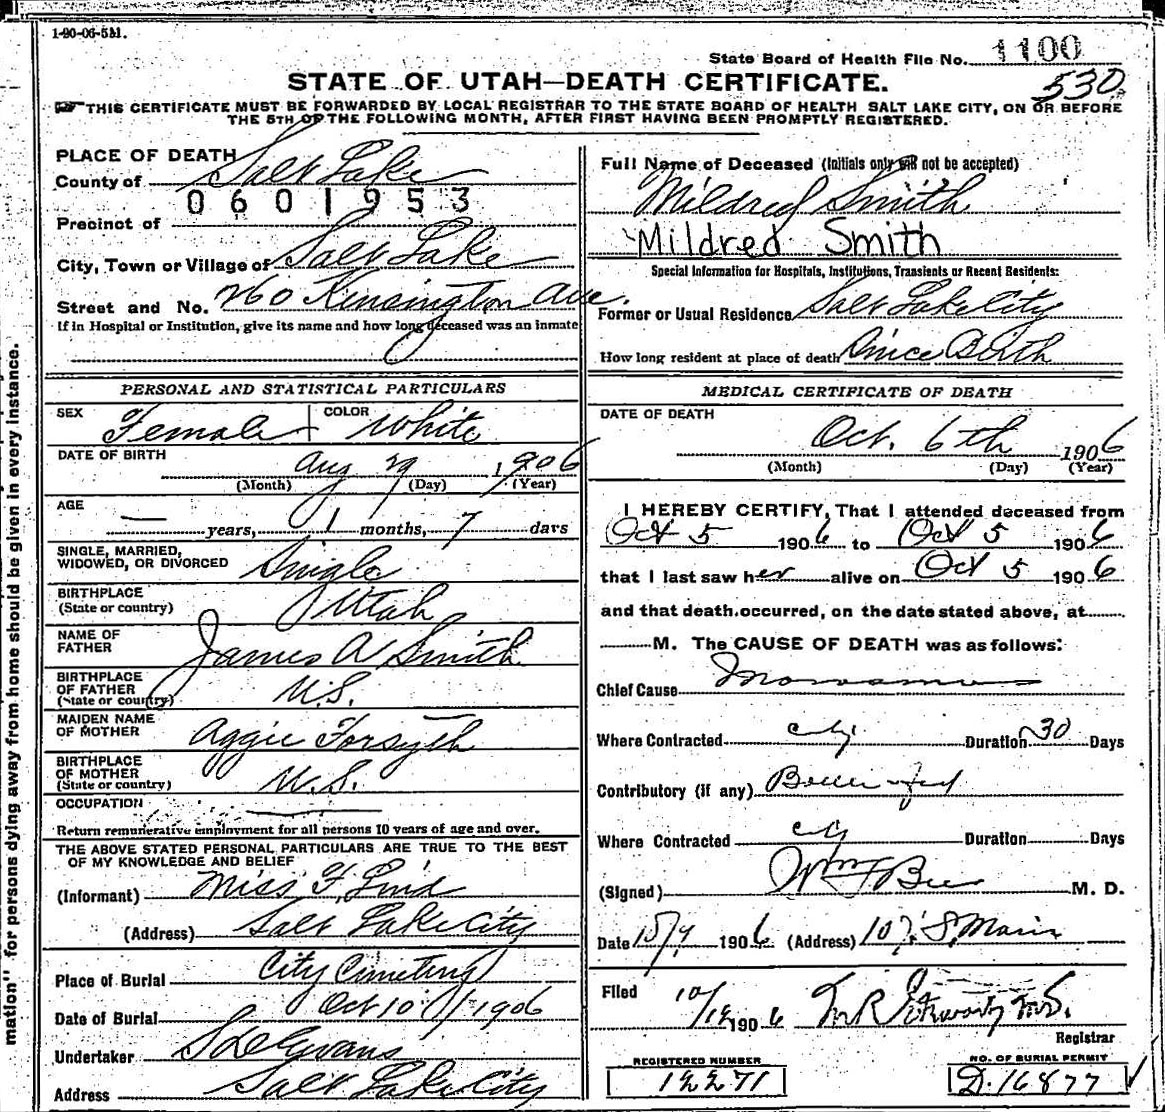 1-20-06-5M.
State Board of Health File No. 1100
530
STATE OF UTAH—DEATH CERTIFICATE.
THIS CERTIFICATE MUST BE FORWARDED BY LOCAL REGISTRAR TO THE STATE BOARD OF HEALTH SALT LAKE CITY, ON OR BEFORE
THE 5TH OF THE FOLLOWING MONTH, AFTER FIRST HAVING BEEN PROMPTLY REGISTERED.
PLACE OF DEATH
County of Salt Lake
0601953
Precinct of
City, Town or Village of Salt Lake
Street and No. 260 Kensington Ave.
If in Hospital or Institution, give its name and how long deceased was an inmate
PERSONAL AND STATISTICAL PARTICULARS
SEX Female COLOR White
DATE OF BIRTH Aug 29 1906
(Month) (Day) (Year)
AGE
— years, 1 months, 7 days
SINGLE, MARRIED,
WIDOWED, OR DIVORCED Single
BIRTHPLACE
(State or country) Utah
NAME OF
FATHER James A Smith
BIRTHPLACE
OF FATHER
(State or country) U.S.
MAIDEN NAME
OF MOTHER Aggie Forsyth
BIRTHPLACE
OF MOTHER
(State or country) U.S.
OCCUPATION
Return remunerative employment for all persons 10 years of age and over.
THE ABOVE STATED PERSONAL PARTICULARS ARE TRUE TO THE BEST
OF MY KNOWLEDGE AND BELIEF
(Informant) Miss F.
(Address) Salt Lake City
Place of Burial City Cemetery
Date of Burial Oct 10 1906
Undertaker S D Evans
Address Salt Lake City
Full Name of Deceased (Initials only will not be accepted)
Mildred Smith
Mildred Smith
Special Information for Hospitals, Institutions, Transients or Recent Residents:
Former or Usual Residence Salt Lake City
How long resident at place of death Since Birth
MEDICAL CERTIFICATE OF DEATH
DATE OF DEATH
Oct. 6th 1906
(Month) (Day) (Year)
I HEREBY CERTIFY, That I attended deceased from
Oct 5 1906 to Oct 5 1906
that I last saw her alive on Oct 5 1906
and that death occurred, on the date stated above, at
M. The CAUSE OF DEATH was as follows:
Chief Cause
Where Contracted City Duration 30 Days
Contributory (if any)
Where Contracted City Duration Days
(Signed) M. D.
Date 1906 (Address) S. Main
Filed 10/12 1906
Registrar
REGISTERED NUMBER
12271
NO. OF BURIAL PERMIT
D. 16877
mation" for persons dying away from home should be given in every instance.